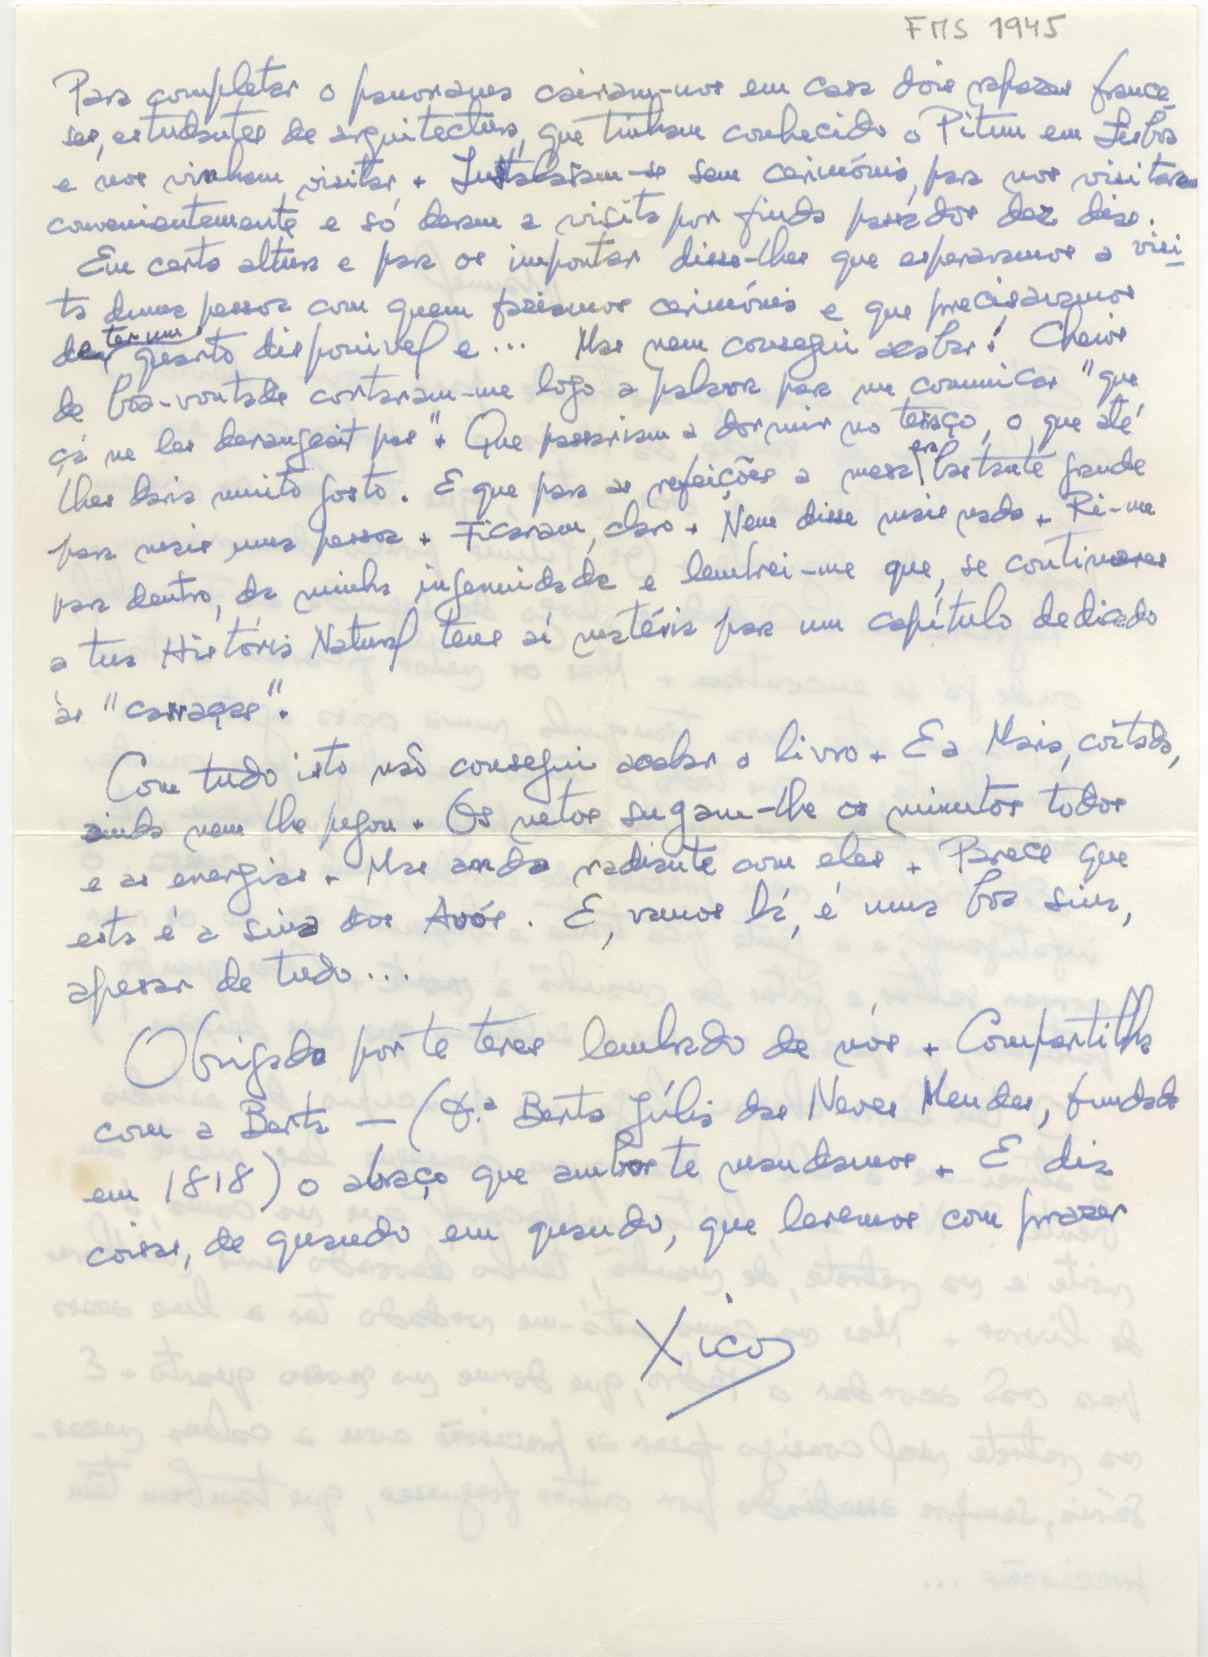 FMS 1945
Para completar o panorama cairam-nos em casa dois rapazes france
ses, estudantes de arquitectura, que tinham conhecido o Pitum em Lisboa
e nos vinham visitar. Instalaram-se sem cerimónia, para nos visitarem
convenientemente e só deram a visita por finda passados dez dias.
Em certa altura e para os importar disse-lhes que esperavamos a visi-
ta duma pessoa com quem faziamos cerimónia e que precisavamos
de ter um quarto disponivel e... Mas nem consegui acabar! Cheios
de boa-vontade cortaram-me logo a palavra para me comunicar "que
çá ne les derangeait pas". Que passariam a dormir no terraço, o que até
lhes daria muito gosto. E que para as refeições a mesa era bastante grande
para mais uma pessoa. Ficaram, claro. Nem disse mais nada. Ri-me
para dentro, da minha ingenuidade e lembrei-me que, se continuares
a tua História Natural tens aí matéria para um capítulo dedicado
às "carraças".
Com tudo isto não consegui acabar o livro. E a Maia, coitada,
ainda nem lhe pegou. Os netos sugam-lhe os minutos todos
e as energias. Mas anda radiante com eles. Parece que
esta é a sina dos Avós. E, vamos lá, é uma boa sina,
apesar de tudo...
Obrigado por te teres lembrado de nós. Compartilha
com a Berta - (D.ª Berta Júlia das Neves Mendes, fundada
em 1818) o abraço que ambos te mandamos. E diz
coisas, de quando em quando, que leremos com prazer
Xico